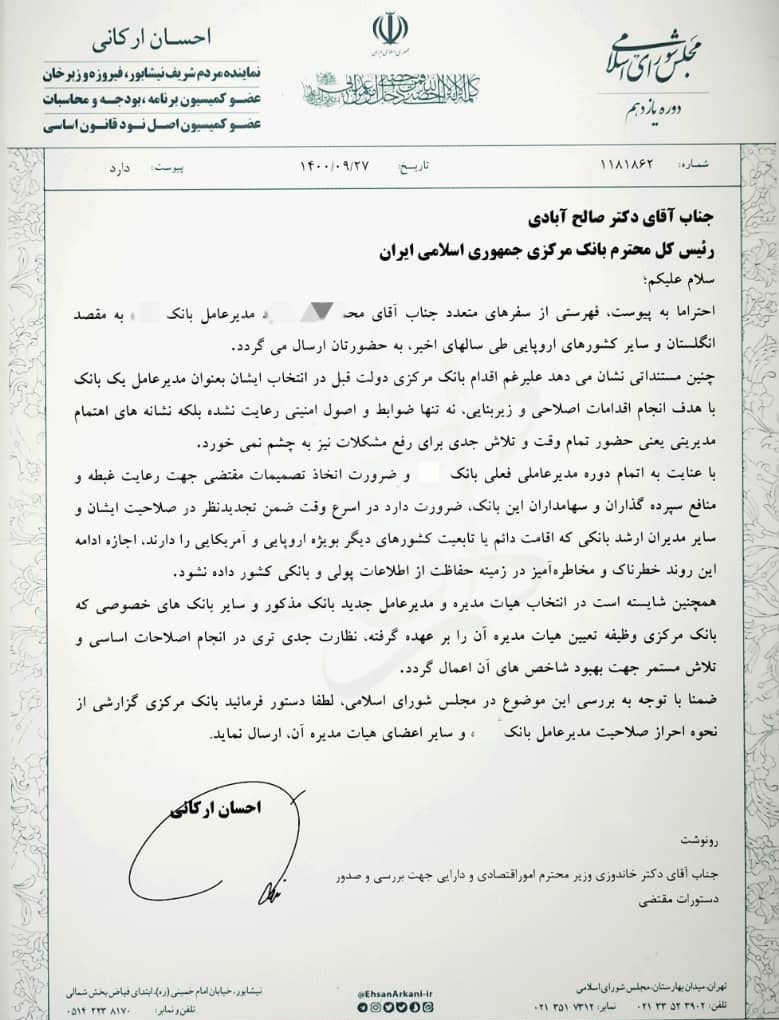 مجلس شورای اسلامی
دوره یازدهم
جمهوری اسلامی ایران
احسان ارکانی
نماینده مردم شریف نیشابور، فیروزه و زبرخان
عضو کمیسیون برنامه، بودجه و محاسبات
عضو کمیسیون اصل نود قانون اساسی
شماره: ۱۱۸۱۸۶۲ تاریخ: ۱۴۰۰/۰۹/۲۷ پیوست: دارد
جناب آقای دکتر صالح آبادی
رئیس کل محترم بانک مرکزی جمهوری اسلامی ایران
سلام علیکم؛
احتراما به پیوست، فهرستی از سفرهای متعدد جناب آقای محـ د مدیرعامل بانک به مقصد
انگلستان و سایر کشورهای اروپایی طی سالهای اخیر، به حضورتان ارسال می گردد.
چنین مستنداتی نشان می دهد علیرغم اقدام بانک مرکزی دولت قبل در انتخاب ایشان بعنوان مدیرعامل یک بانک
با هدف انجام اقدامات اصلاحی و زیربنایی، نه تنها ضوابط و اصول امنیتی رعایت نشده بلکه نشانه های اهتمام
مدیریتی یعنی حضور تمام وقت و تلاش جدی برای رفع مشکلات نیز به چشم نمی خورد.
با عنایت به اتمام دوره مدیرعاملی فعلی بانک و ضرورت اتخاذ تصمیمات مقتضی جهت رعایت غبطه و
منافع سپرده گذاران و سهامداران این بانک، ضرورت دارد در اسرع وقت ضمن تجدیدنظر در صلاحیت ایشان و
سایر مدیران ارشد بانکی که اقامت دائم یا تابعیت کشورهای دیگر بویژه اروپایی و آمریکایی را دارند، اجازه ادامه
این روند خطرناک و مخاطره‌آمیز در زمینه حفاظت از اطلاعات پولی و بانکی کشور داده نشود.
همچنین شایسته است در انتخاب هیات مدیره و مدیرعامل جدید بانک مذکور و سایر بانک های خصوصی که
بانک مرکزی وظیفه تعیین هیات مدیره آن را بر عهده گرفته، نظارت جدی تری در انجام اصلاحات اساسی و
تلاش مستمر جهت بهبود شاخص های آن اعمال گردد.
ضمنا با توجه به بررسی این موضوع در مجلس شورای اسلامی، لطفا دستور فرمائید بانک مرکزی گزارشی از
نحوه احراز صلاحیت مدیرعامل بانک و سایر اعضای هیات مدیره آن، ارسال نماید.
احسان ارکانی
رونوشت
جناب آقای دکتر خاندوزی وزیر محترم اموراقتصادی و دارایی جهت بررسی و صدور
دستورات مقتضی
تهران، میدان بهارستان، مجلس شورای اسلامی
تلفن: ۳۹۰۲ ۵۲ ۳۳ ۰۲۱ نمابر: ۷۳۱۲ ۳۵۱ ۰۲۱
@EhsanArkani-ir
نیشابور، خیابان امام خمینی (ره)، ابتدای فیاض بخش شمالی
تلفن و نمابر: ۸۱۷۰ ۲۲۳ ۰۵۱۴